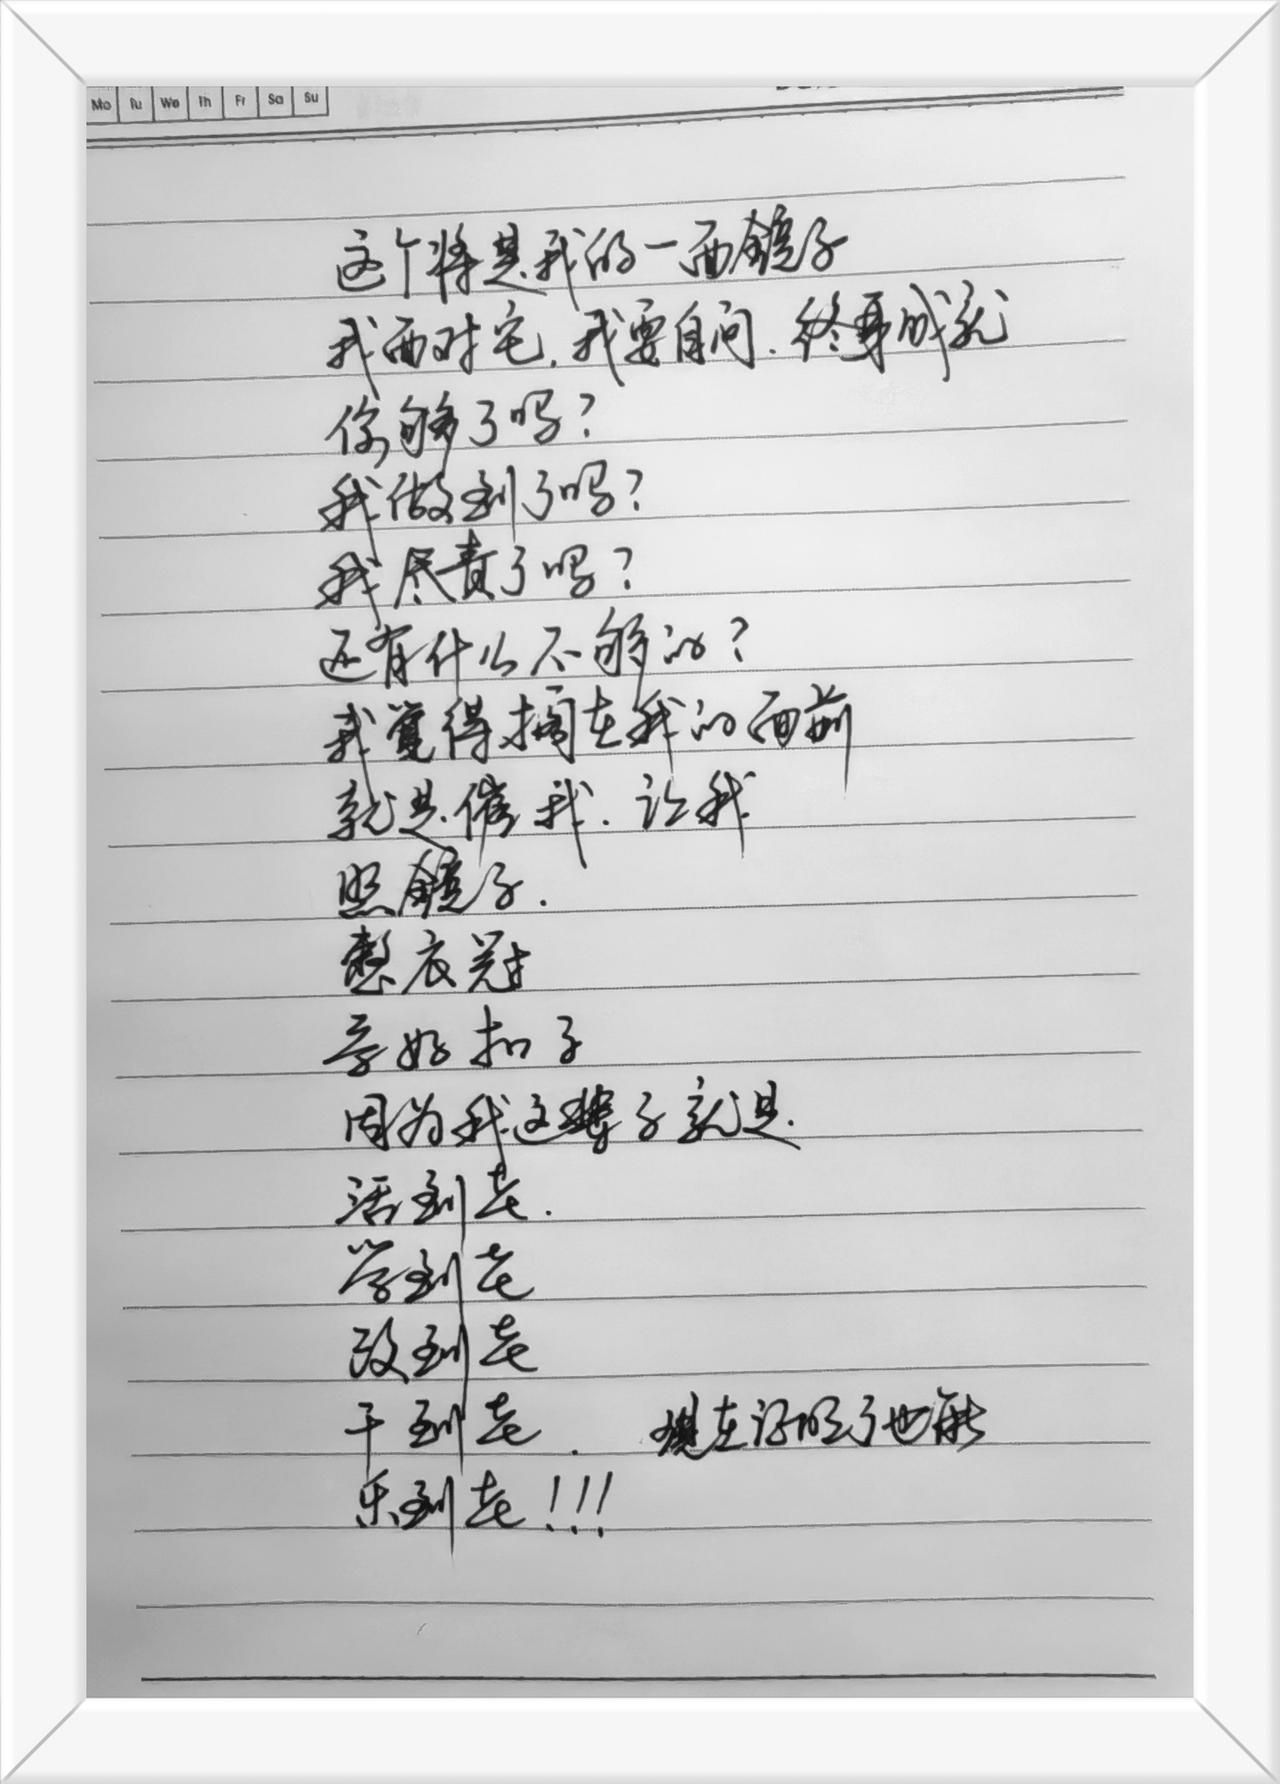 Mo Tu We Th Fr Sa Su
这个将是我的一面鏡子
我面对它.我要自问.终身成就
你够了吗?
我做到了吗?
我尽责了吗?
还有什么不够的?
我覺得搁在我的面前
就是催我.让我
照鏡子.
整衣冠
系好扣子
因为我这辈子就是
活到老.
学到老
改到老
干到老. 现在证明了也能
乐到老!!!